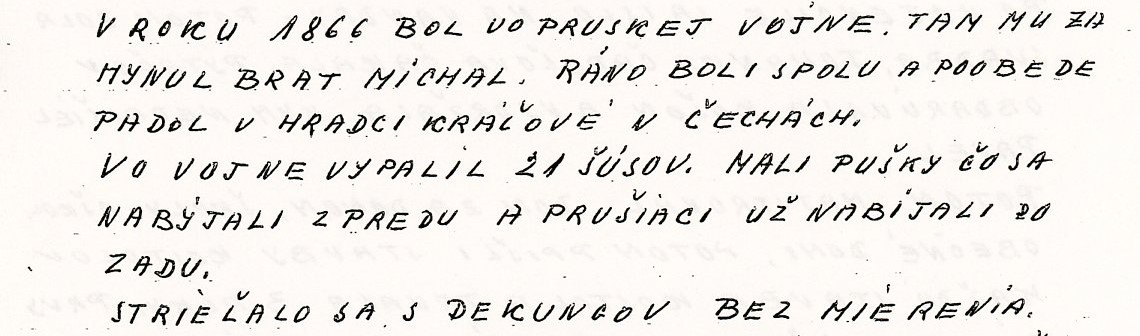 V ROKU 1866 BOL VO PRUSKEJ VOJNE. TAM MU ZA
HYNUL BRAT MICHAL. RÁNO BOLI SPOLU A POOBEDE
PADOL V HRADCI KRÁĽOVÉ V ČECHÁCH.
VO VOJNE VYPALIL 21 ŠÚSOV. MALI PUŠKY ČO SA
NABÝJALI Z PREDU A PRUŠIACI UŽ NABÍJALI ZO
ZADU.
STRIEĽALO SA S DEKUNGOV BEZ MIERENIA.